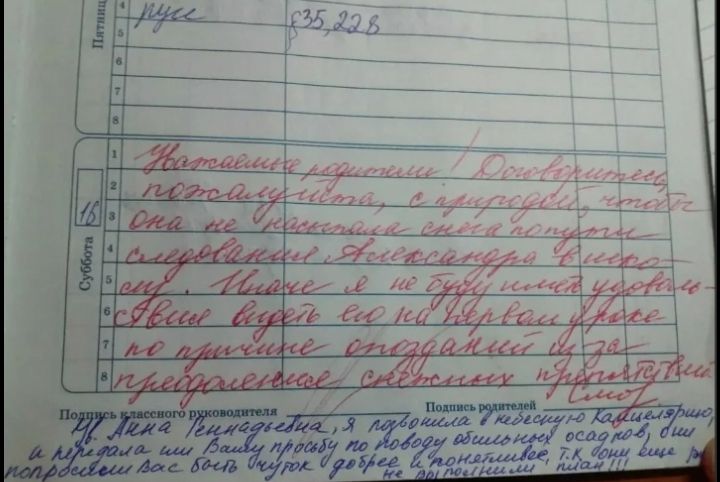 Пятниц
4 русс §35, 228
5
6
7
8
Суббота 16
1 Уважаемые родители! Договоритесь,
2 пожалуйста, с природой, чтобы
3 она не насыпала снега по пути
4 следования Александра в шко-
5 лу. Иначе я не буду иметь удоволь-
6 ствия видеть его на первом уроке
7 по причине опозданий из за
8 преодоления снежных препятствий
Подпись классного руководителя Подпись родителей
Ув. Анна Геннадьевна, я позвонила в небесную канцелярию,
и передала им Вашу просьбу по поводу обильных осадков, они
попросили Вас быть чуток добрее и понятливее, т.к они еще
не выполнили план!!!